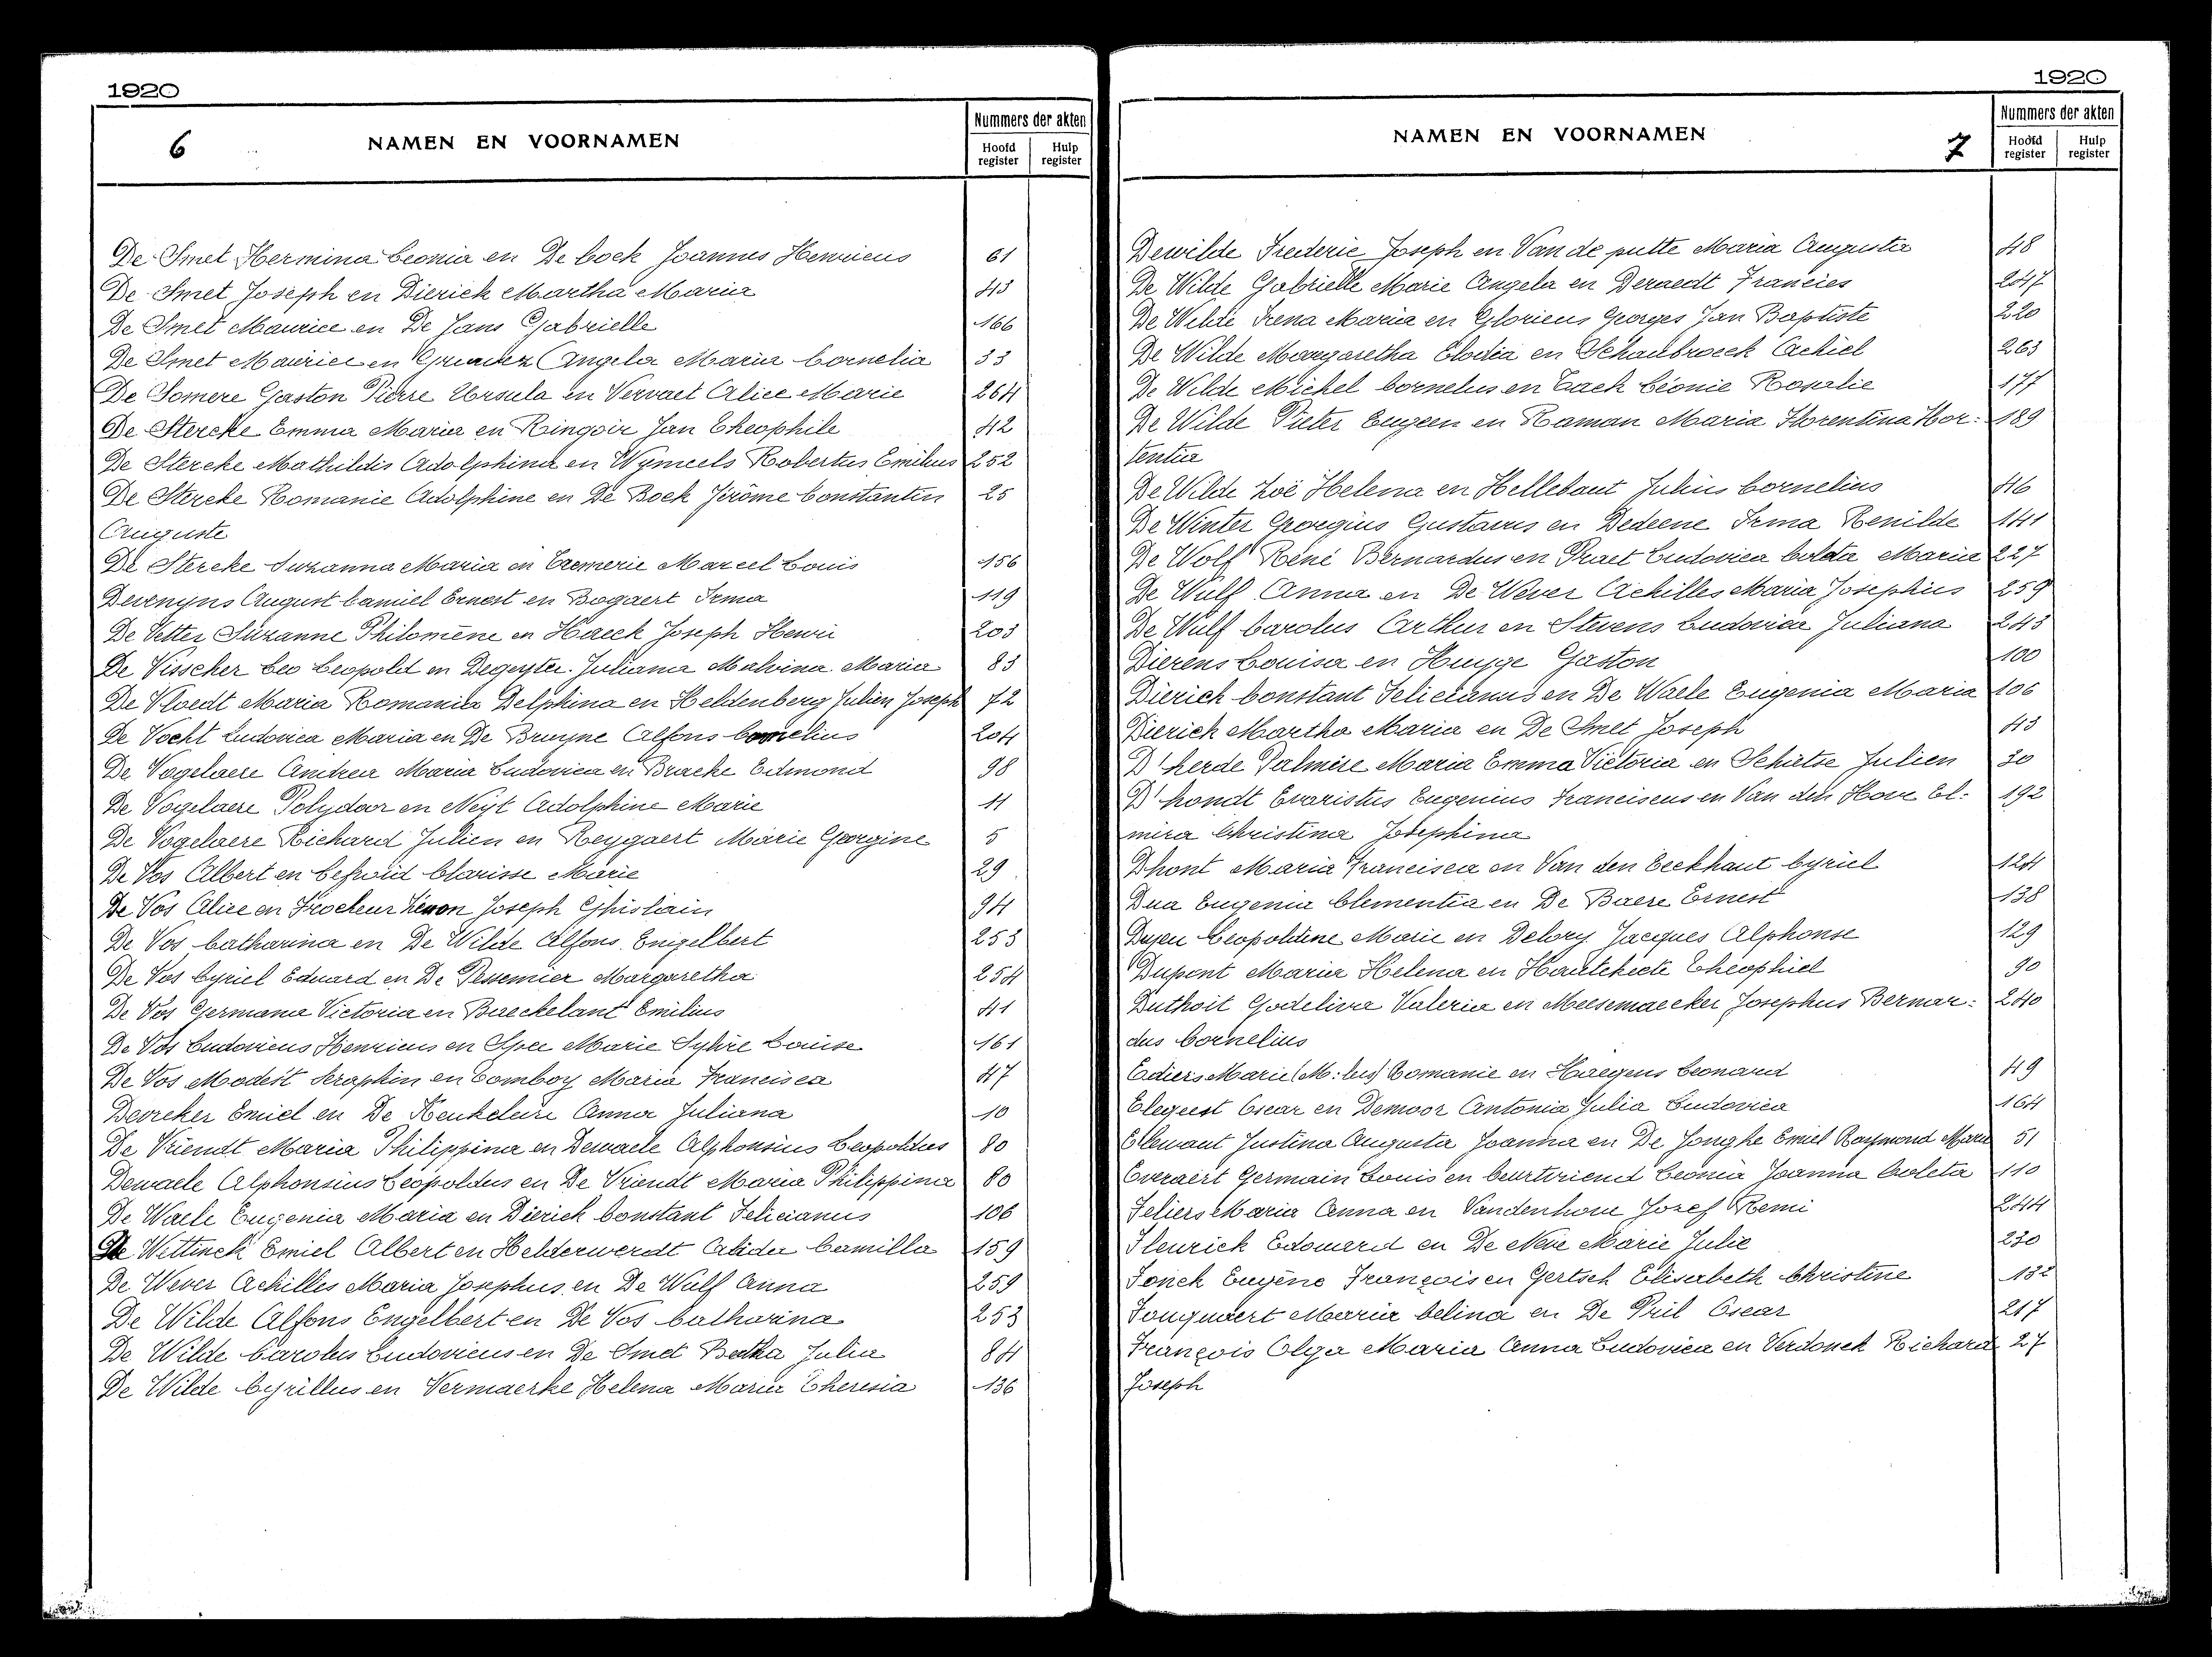 1920
6 NAMEN EN VOORNAMEN
Nummers der akten
Hoofd register Hulp register
De Smet Hermina Leonia en De Cock Joannes Henricus 61
De Smet Joseph en Dierick Martha Maria 43
De Smet Maurice en De Jans Gabrielle 166
De Smet Maurice en Angela Maria Cornelia 33
De Somere Gaston Pierre Ursula en Vervaet Alice Marie 264
De Stercke Emma Maria en Ringoir Jan Theophile 42
De Stercke Mathildis Adolphina en Wymeels Robertus Emilius 252
De Stercke Romanie Adolphine en De Bock Jérôme Constantin 25
Auguste
De Stercke Suzanna Maria en Cremerie Marcel Louis 156
Devenijns August Camiel Ernest en Bogaert Irma 119
De Vetter Suzanne Philomène en Haeck Joseph Henri 203
De Visscher Leo Leopold en Degeyter Juliana Malvina Maria 83
De Vloedt Maria Romania Delphina en Heldenberg Julien Joseph 72
De Vocht Ludovica Maria en De Bruyne Alfons Cornelius 204
De Vogelaere Andrea Maria Ludovica en Bracke Edmond 98
De Vogelaere Polydoor en Neyt Adolphine Marie 11
De Vogelaere Richard Julien en Reygaert Marie Georgine 5
De Vos Albert en Lefroid Clarisse Marie 29
De Vos Alice en Frocheur Joseph Ghislain 94
De Vos Catharina en De Wilde Alfons Engelbert 253
De Vos Cyriel Eduard en De Pessemier Margaretha 254
De Vos Germana Victoria en Baeckelant Emilius 41
De Vos Ludovicus Henricus en Spee Marie Sylvie Louise 161
De Vos Modest Seraphin en Comboy Maria Francisca 47
Devreker Emiel en De Keukeleire Anna Juliana 10
De Vriendt Maria Philippina en Dewaele Alphonsius Leopoldus 80
Dewaele Alphonsius Leopoldus en De Vriendt Maria Philippina 80
De Waele Eugenia Maria en Dierick Constant Felicianus 106
De Wettinck Emiel Albert en Helderweirdt Alida Camilla 159
De Wever Achilles Maria Josephus en De Wulf Anna 259
De Wilde Alfons Engelbert en De Vos Catharina 253
De Wilde Carolus Ludovicus en De Smet Bertha Julia 84
De Wilde Cyrillus en Vermaerke Helena Maria Theresia 136
1920
NAMEN EN VOORNAMEN 7
Nummers der akten
Hoofd register Hulp register
Dewilde Frederic Joseph en Van de putte Maria Augusta 48
De Wilde Gabrielle Marie Angela en Deraedt Francies 247
De Wilde Irena Maria en Glorieus Georges Jan Baptiste 220
De Wilde Margaretha Elodia en Schaubroeck Achiel 263
De Wilde Michel Cornelus en Tack Léonie Rosalie 177
De Wilde Pieter Eugeen en Raman Maria Florentina Hor: 189
tentia
De Wilde Zoë Helena en Hellebaut Julius Cornelius 46
De Winter Georgius Gustavus en Dedeene Irma Renilde 141
De Wolf René Bernardus en Praet Ludovica Coleta Maria 227
De Wulf Anna en De Wever Achilles Maria Josephus 259
De Wulf Carolus Arthur en Stevens Ludovica Juliana 243
Dierens Louisa en Huyge Gaston 100
Dierick Constant Felicianus en De Waele Eugenia Maria 106
Dierick Martha Maria en De Smet Joseph 43
D'herde Palmire Maria Emma Victoria en Schietse Julien 30
D'hondt Evaristus Eugenius Franciscus en Van den Hove El: 192
mira Christina Josephina
Dhont Maria Francisca en Van den Eeckhaut Cyriel 124
Dua Eugenia Clementia en De Baere Ernest 138
Leopoldine Marie en Delory Jacques Alphonse 129
Dupont Maria Helena en Hautekiete Theophiel 90
Duthoit Godelieva Valeria en Meesemaecker Josephus Bernar: 240
dus Cornelius
Ediers Marie (M: lus) Romanie en Haegens Leonard 49
Elegeert Oscar en Demoor Antonia Julia Ludovica 164
Ellewaut Justina Augusta Joanna en De Jonghe Emiel Raymond Marie 51
Everaert Germain Louis en Ceurtvriend Leonia Joanna Coleta 110
Feliers Maria Anna en Vandenhove Jozef Remi 244
Fleurick Edouard en De Neve Marie Julie 230
Fonck Eugène François en Gertsch Elisabeth Christine 132
Fouquaert Maria Celina en De Pril Oscar 217
François Olga Maria Anna Ludovica en Verdonck Richard 27
Joseph